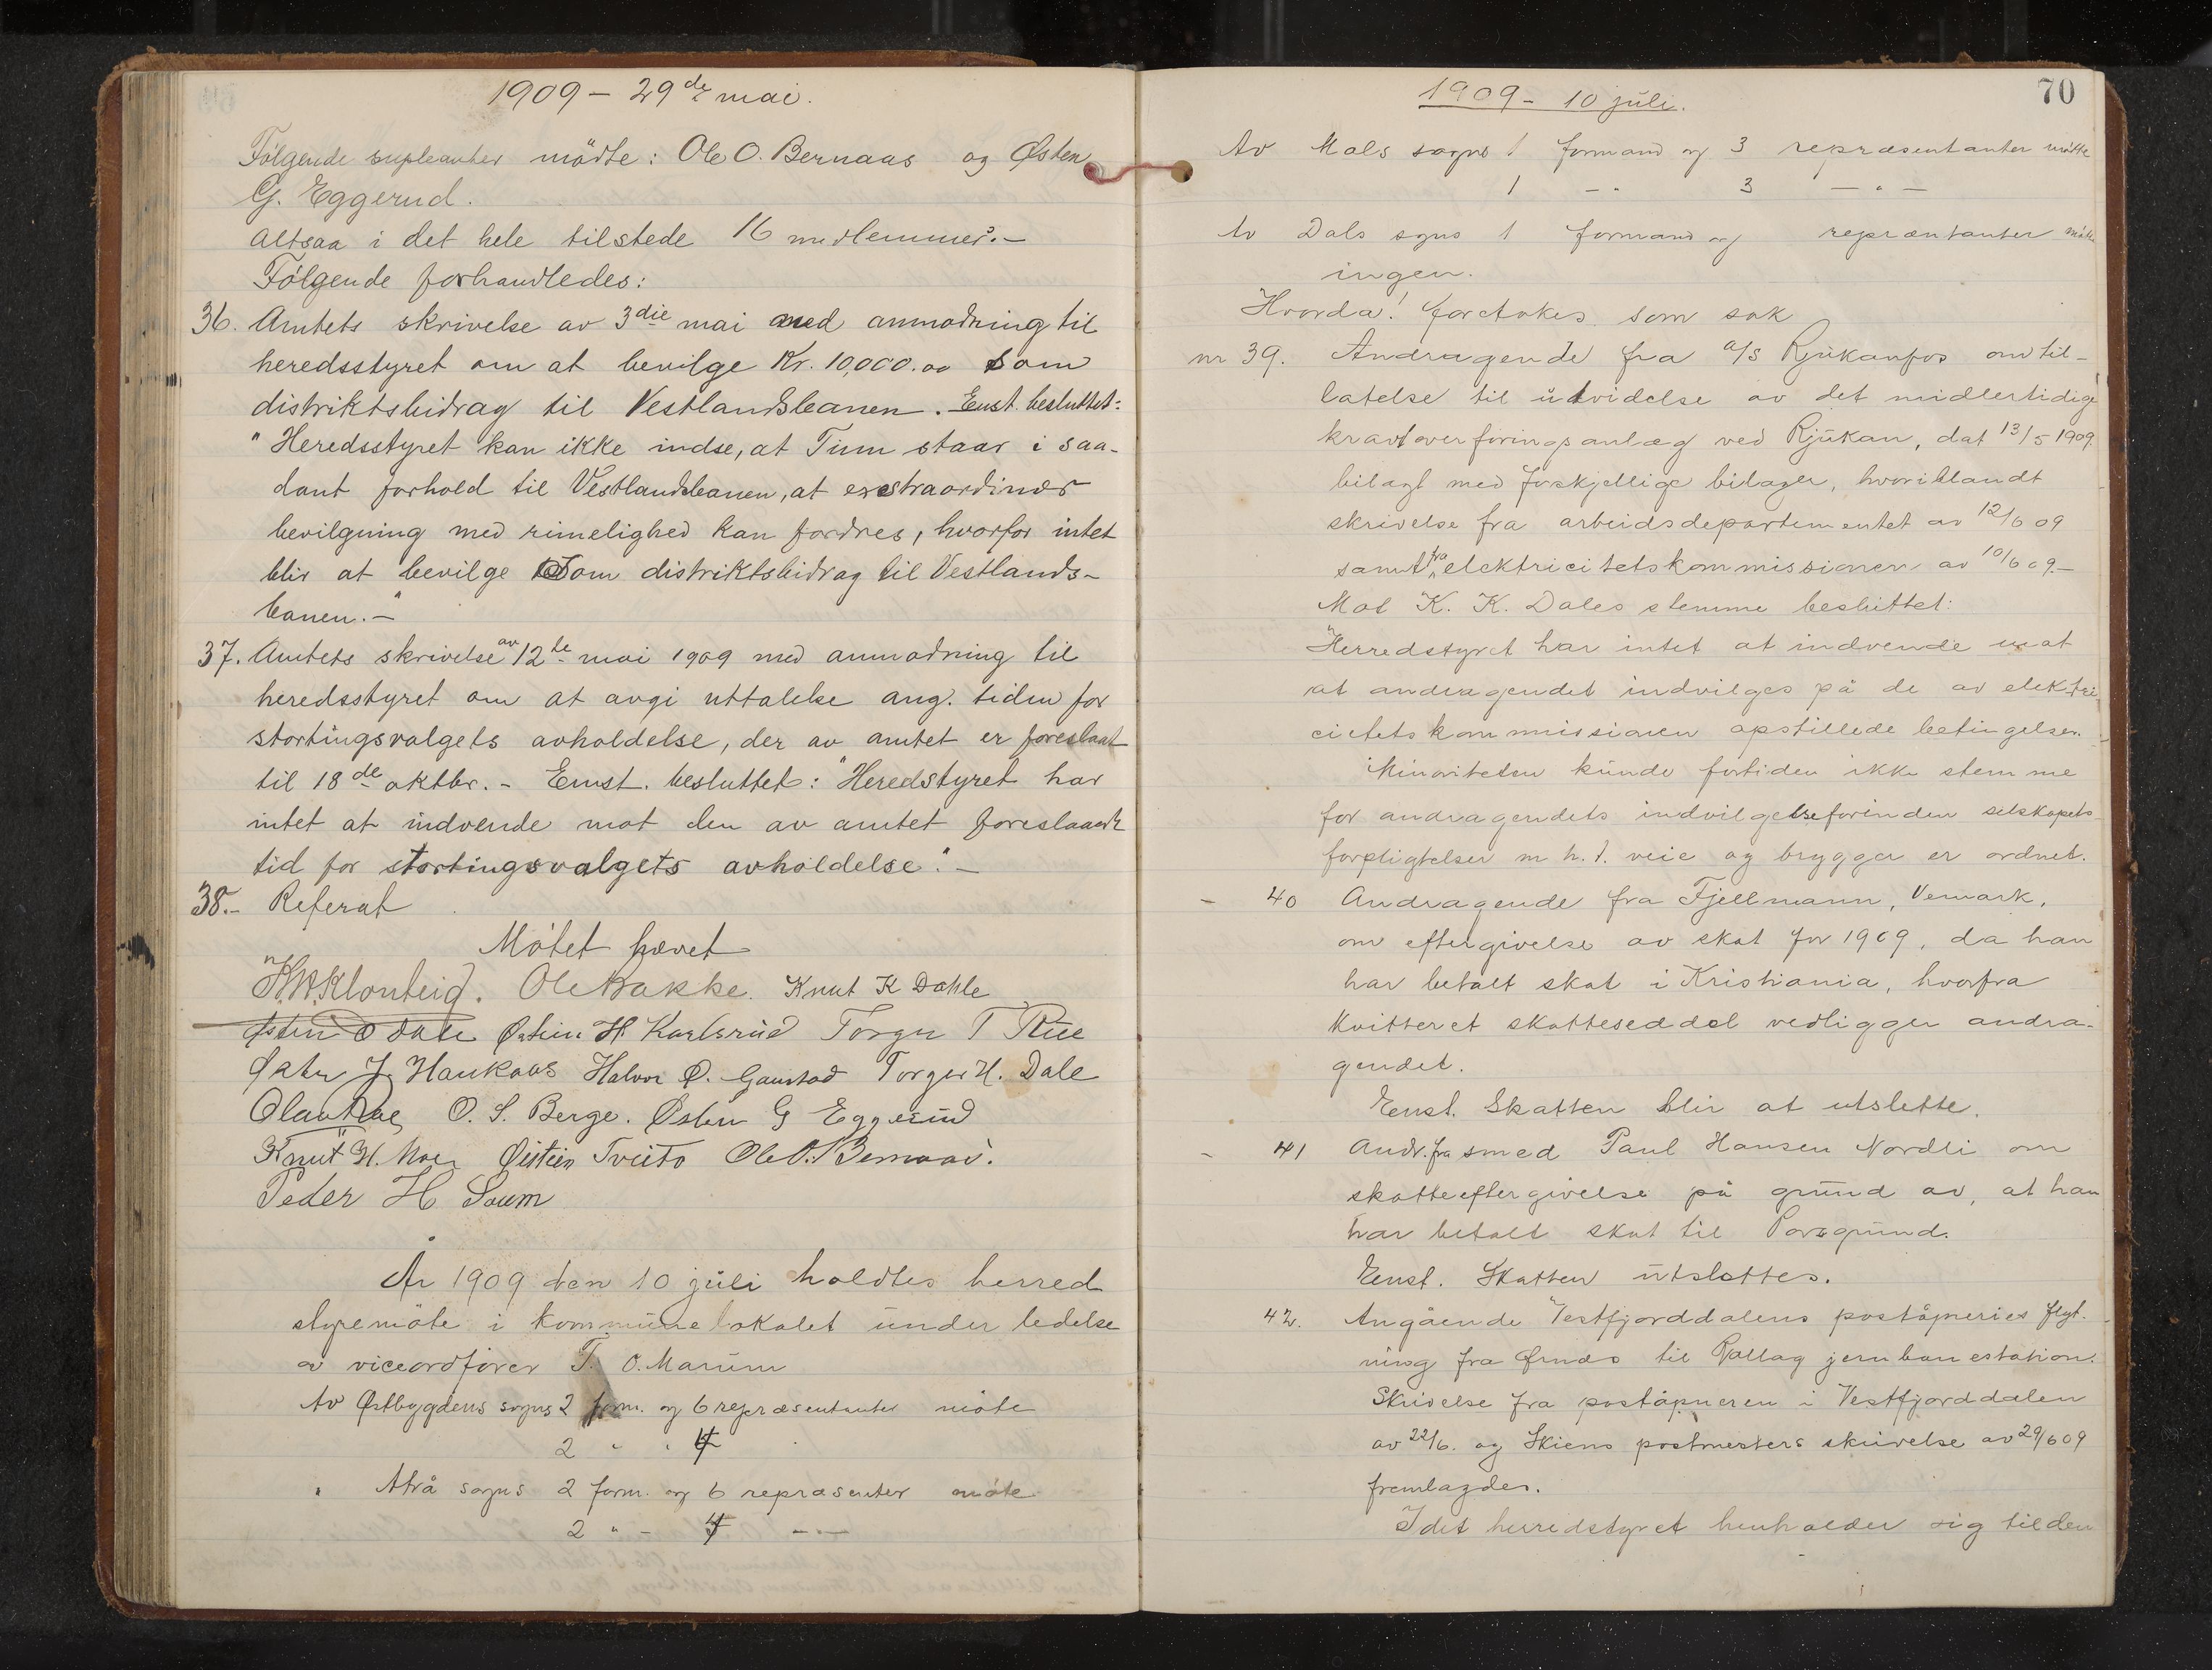 1909 - 29de mai.
Følgende supleanter mödte: Ole O. Bernaas og Østen
G. Eggerud.
altsaa i det hele tilstede 16 medlemmer. -
Følgende forhandledes:
36. Amtets skrivelse av 3die mai med anmodning til
heredsstyret om at bevilge Kr. 10,000.00 som
distriktsbidrag til Vestlandsbanen. Enst. besluttet:
"Heredsstyret kan ikke indse, at Tinn staar i saa-
dant forhold til Vestlandsbanen, at exstraordinær
bevilgning med rimelighed kan fordres, hvorfor intet
blir at bevilge som distriktsbidrag til Vestlands-
banen." -
37. Amtets skrivelse av 12te mai 1909 med anmodning til
heredsstyret om at avgi uttalelse ang. tiden for
stortingsvalgets avholdelse, der av amtet er foreslaat
til 18de oktbr. - Enst. besluttet: "Heredstyret har
intet at indvende mot den av amtet foreslaaede
tid for stortingsvalgets avholdelse." -
38. - Referat
Møtet hævet
H.H.Klonteig. Ole Bakke. Knut K Dahle
Østen O Dale Østein H Karlsrud Torger T Rue
Østen J Haukaas Halvor Ø. Gaustad Torger H. Dale
Olav Rue O. S. Berge. Østen G Eggerud
Knut H. Moen Øistein Tveito Ole O. Bernaas.
Peder H Saem
År 1909 den 10 juli holdtes herred
styremöte i kommunelokalet under ledelse
av viceordfører T. O. Marum
Av Østbygdens sogns 2 form. og 6 repræsentanter möte
2 " " 4
" Atrå sogns 2 form. og 6 repræsenter möte
2 " - 4 - " -
1909 - 10 juli.
70
Av Mæls sogns 1 formand og 3 repræsentanter møtte
1 - " 3 - " -
Av Dals sogns 1 formand og repræntanter møtte
ingen.
Hvorda! foretokes som sak
nr 39. Andragende fra a/s Rjukanfos om til-
latelse til utvidelse av det midlertidige
kraftoverføringsanlæg ved Rjukan, dat 13/5 1909.
bilagt med forskjellige bilager, hvoriblandt
skrivelse fra arbeidsdepartementet av 12/6 09
samt fra elektricitetskommissionen av 10/6 09. -
Mot K. K. Dales stemme besluttet:
"Herredstyret har intet at indvende mot
at andragendet indvilges på de av elektri
citetskommissionen opstillede betingelser.
Minoriteten kunde fortiden ikke stemme
for andragendets indvilgelse forinden selskapets
forpligtelser m. h. t. veie og brygger er ordnet.
- 40 Andragende fra Fjellmann, Vemark,
om eftergivelse av skat for 1909, da han
har betalt skat i Kristiania, hvorfra
kvitteret skatteseddel vedligger andra-
gendet.
Enst. Skatten blir at utslette.
- 41 Andr. fra smed Paul Hansen Nordli om
skatteeftergivelse på grund av, at han
har betalt skat til Porsgrund.
Enst. Skatten utslettes.
42. Angående Vestfjorddalens poståpneries flyt-
ning fra Ørnes til Rollag jernbanestation.
Skrivelse fra poståpneren i Vestfjorddalen
av 22/6. og Skiens postmesters skrivelse av 29/6 09
fremlagdes.
Idet herredstyret henholder sig til den